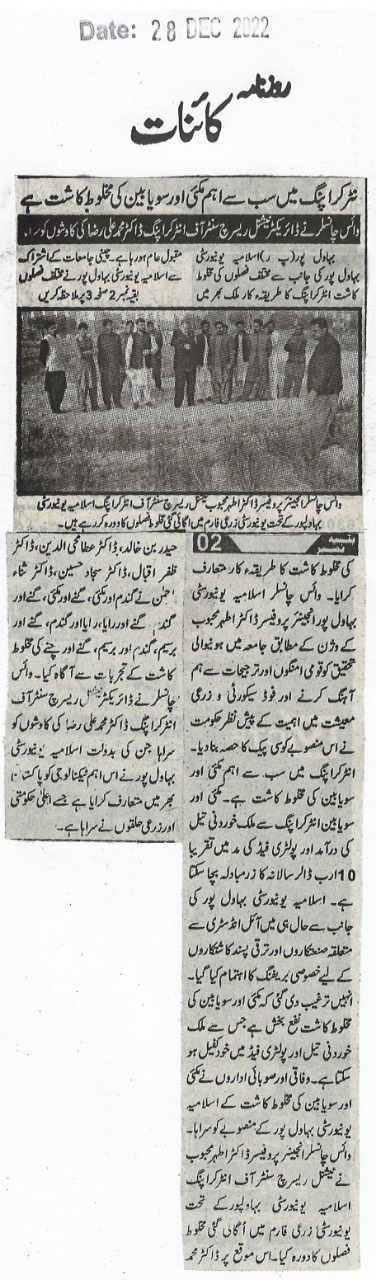 Date: 28 DEC 2022
روزنامہ
کائنات
نٹر کراپنگ میں سب سے اہم مکئی اور سویا بین کی مخلوط کاشت ہے
وائس چانسلر نے ڈائریکٹر نیشنل ریسرچ سنٹر آف انٹر کراپنگ ڈاکٹر محمد علی رضا کی کاوشوں کو سراہا
بہاول پور (پ ر) اسلامیہ یونیورسٹی
بہاول پور کی جانب سے مختلف فصلوں کی مخلوط
کاشت انٹر کراپنگ کا طریقہ کار ملک بھر میں
مقبول عام ہو رہا ہے۔ چینی جامعات کے اشتراک
سے اسلامیہ یونیورسٹی بہاول پور نے مختلف فصلوں
بقیہ نمبر 2 صفحہ 3 پر ملاحظہ کریں
وائس چانسلر انجینئر پروفیسر ڈاکٹر اطہر محبوب نیشنل ریسرچ سنٹر آف انٹر کراپنگ اسلامیہ یونیورسٹی
بہاولپور کے تحت یونیورسٹی زرعی فارم میں اگائی گئی مخلوط فصلوں کا دورہ کر رہے ہیں۔
بقیہ نمبر 02
کی مخلوط کاشت کا طریقہ کار متعارف
کرایا۔ وائس چانسلر اسلامیہ یونیورسٹی
بہاول پور انجینئر پروفیسر ڈاکٹر اطہر محبوب
کے وژن کے مطابق جامعہ میں ہونیوالی
تحقیق کو قومی امنگوں اور ترجیحات سے ہم
آہنگ کرنے اور فوڈ سیکورٹی و زرعی
معیشت میں اہمیت کے پیش نظر حکومت
نے اس منصوبے کو سی پیک کا حصہ بنا دیا۔
انٹر کراپنگ میں سب سے اہم مکئی اور
سویا بین کی مخلوط کاشت ہے۔ مکئی اور
سویا بین انٹر کراپنگ سے ملک خوردنی تیل
کی درآمد اور پولٹری فیڈ کی مد میں تقریبا
10 ارب ڈالر سالانہ کا زرمبادلہ بچا سکتا
ہے۔ اسلامیہ یونیورسٹی بہاول پور کی
جانب سے حال ہی میں آئل انڈسٹری سے
متعلقہ صنعتکاروں اور ترقی پسند کاشتکاروں
کے لیے خصوصی بریفنگ کا اہتمام کیا گیا۔
انہیں ترغیب دی گئی کہ مکئی اور سویا بین کی
مخلوط کاشت نفع بخش ہے جس سے ملک
خوردنی تیل اور پولٹری فیڈ میں خود کفیل ہو
سکتا ہے۔ وفاقی اور صوبائی اداروں نے مکئی
اور سویا بین کی مخلوط کاشت کے اسلامیہ
یونیورسٹی بہاول پور کے منصوبے کو سراہا۔
وائس چانسلر انجینئر پروفیسر ڈاکٹر اطہر محبوب
نے نیشنل ریسرچ سنٹر آف انٹر کراپنگ
اسلامیہ یونیورسٹی بہاولپور کے تحت
یونیورسٹی زرعی فارم میں اگائی گئی مخلوط
فصلوں کا دورہ کیا۔ اس موقع پر ڈاکٹر محمد
حیدر بن خالد، ڈاکٹر عطا محی الدین، ڈاکٹر
ظفر اقبال، ڈاکٹر سجاد حسین، ڈاکٹر ثناء
رحمٰن نے گندم اور مکئی، گنے اور مکئی، گنے اور
گندم، گنے اور رایا، رایا اور گندم، گنے اور
برسیم، گندم اور برسیم، گنے اور چنے کی مخلوط
کاشت کے تجربات سے آگاہ کیا۔ وائس
چانسلر نے ڈائریکٹر نیشنل ریسرچ سنٹر آف
انٹر کراپنگ ڈاکٹر محمد علی رضا کی کاوشوں کو
سراہا جن کی بدولت اسلامیہ یونیورسٹی
بہاول پور نے اس اہم ٹیکنالوجی کو پاکستان
بھر میں متعارف کرایا ہے جسے اعلیٰ حکومتی
اور زرعی حلقوں نے سراہا ہے۔